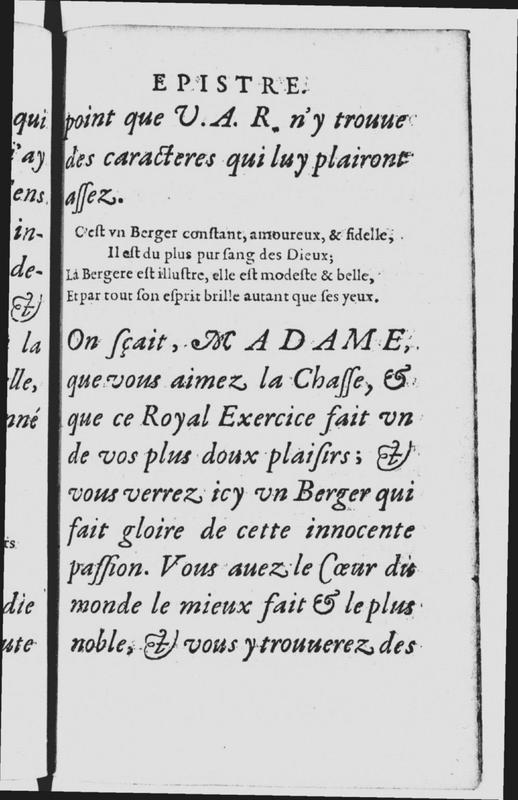 EPISTRE.
point que V. A. R. n'y trouue
des caracteres qui luy plairont
aſſez.
C'eſt vn Berger conſtant, amoureux, & fidelle,
Il eſt du plus pur ſang des Dieux;
La Bergere eſt illuſtre, elle eſt modeſte & belle,
Et par tout ſon eſprit brille autant que ſes yeux.
On ſçait, MADAME,
que vous aimez la Chaſſe, &
que ce Royal Exercice fait vn
de vos plus doux plaiſirs; &
vous verrez icy vn Berger qui
fait gloire de cette innocente
paſſion. Vous auez le Cœur du
monde le mieux fait & le plus
noble, & vous y trouuerez des
qui
i'ay
ens
in-
de-
&
la
lle,
nné
die
ute